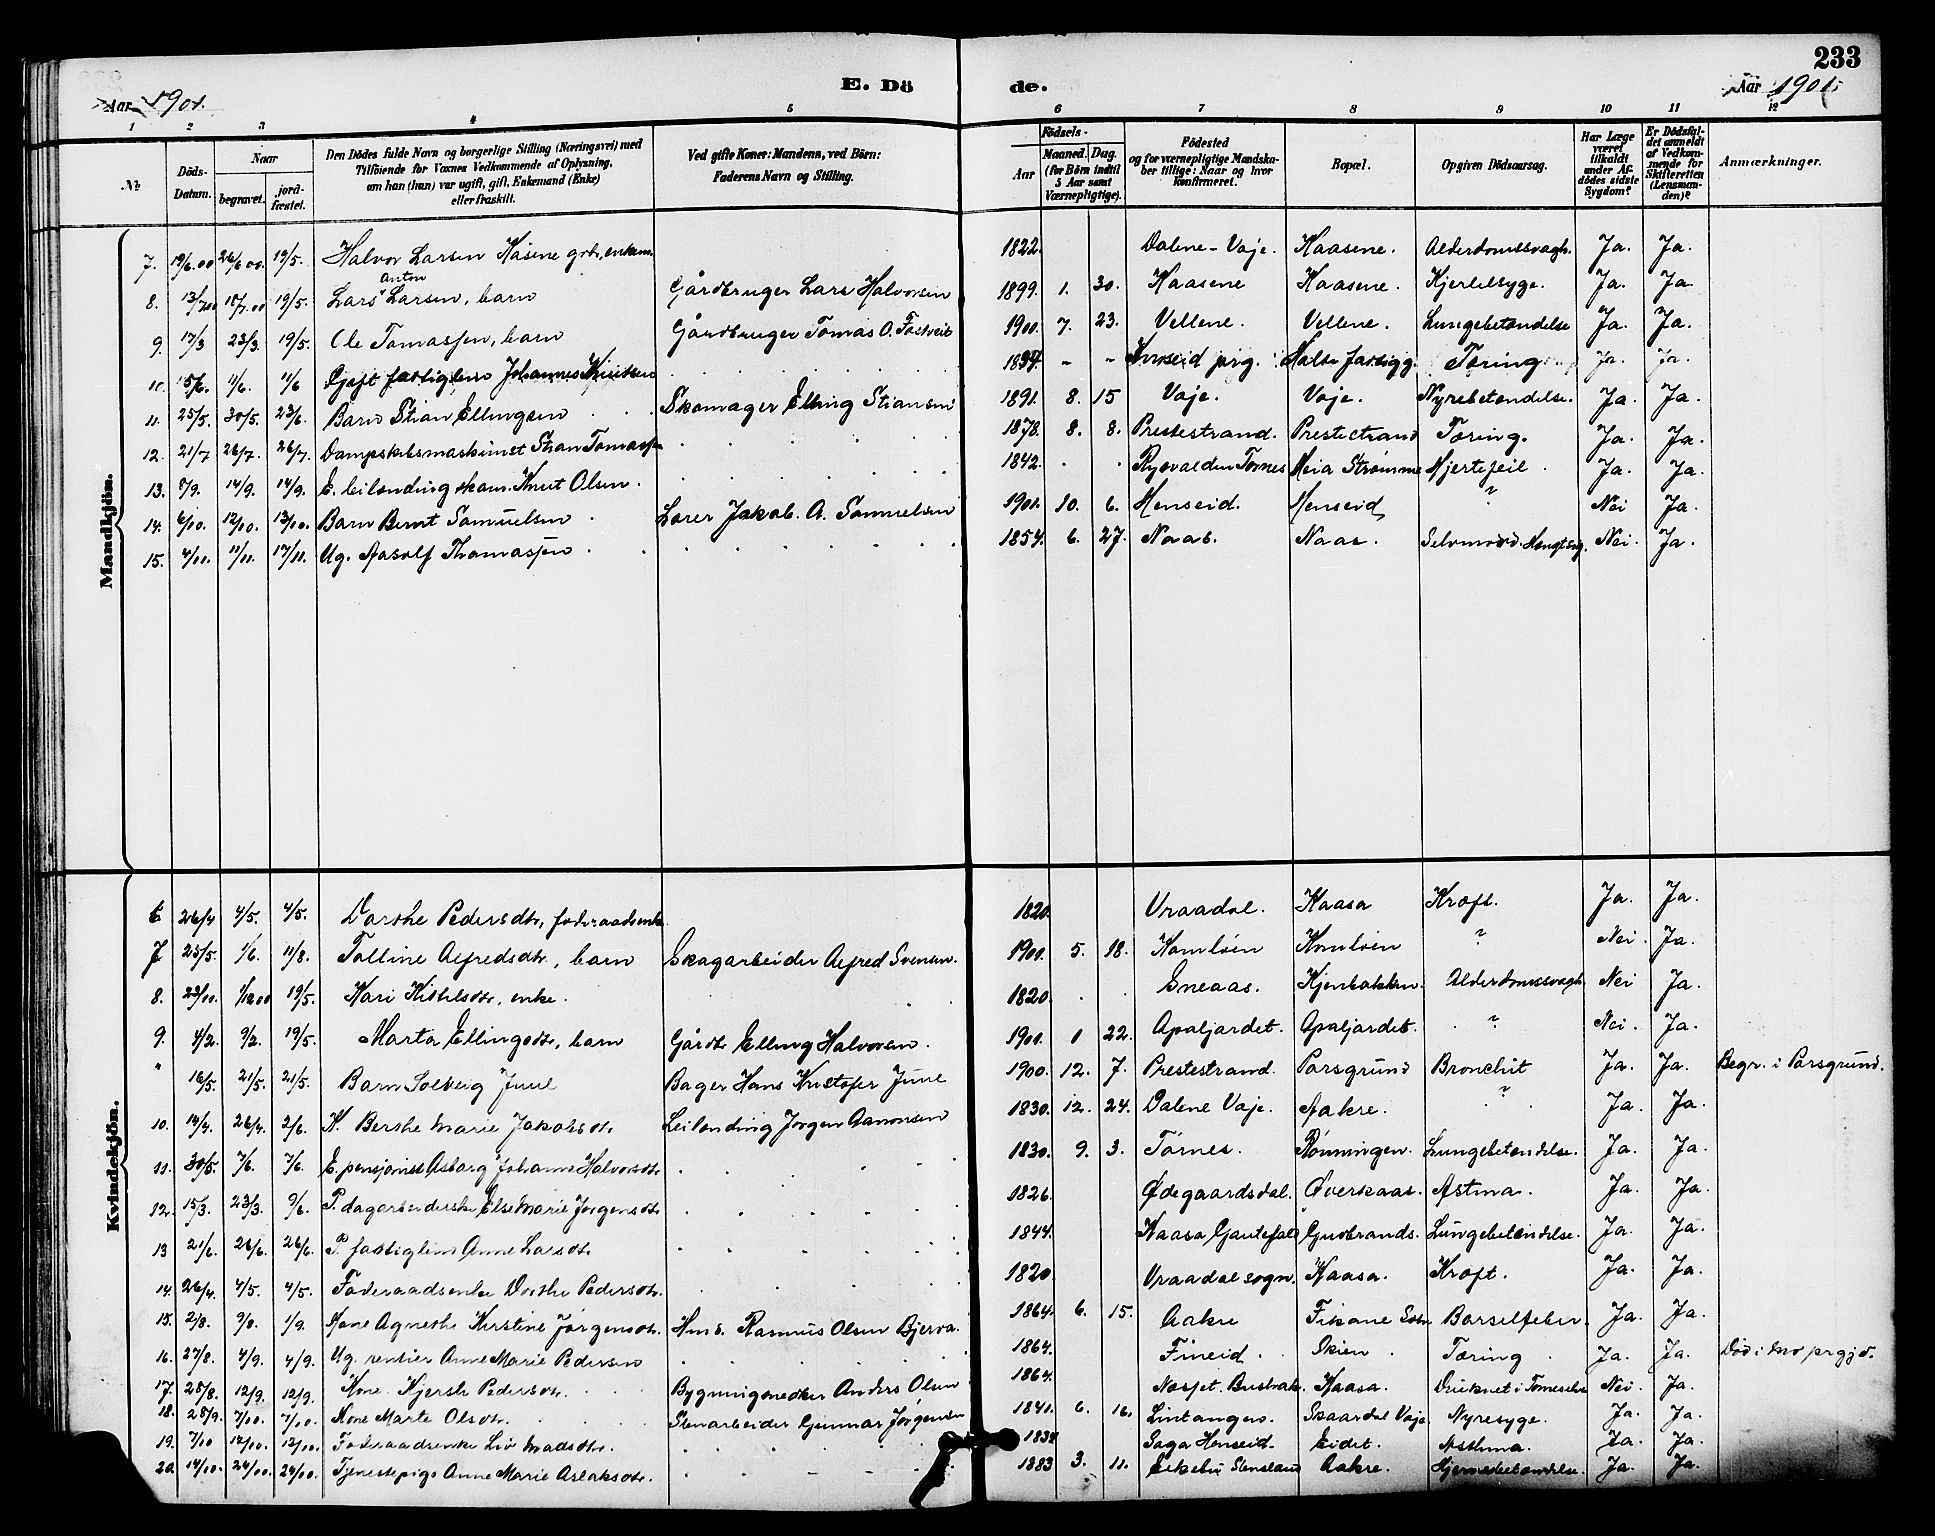 233
Aar 1901.
E. Dö
de.
Aar 1901
1 2 3 4 5 6 7 8 9 10 11 12
№
Döds-Datum.
Naar
begravet.
jord-fæstet.
Den Dödes fulde Navn og borgerlige Stilling (Næringsvei) med
Tilföiende for Voxnes Vedkommende af Oplysning,
om hun (han) var ugift, gift, Enkemand (Enke)
eller fraskilt.
Ved gifte Koner: Mandens, ved Börn:
Faderens Navn og Stilling.
Födsels-
Aar
Maaned. Dag.
(for Börn indtil
5 Aar samt
Værnepligtige).
Födested
og for værnepligtige Mandska-
ber tillige: Naar og hvor
Konfirmeret.
Bopæl.
Opgiven Dödsaarsag.
Har Læge
været
tilkaldt
under Af-
dödes sidste
Sygdom?
Er Dödsfal-
det anmeldt
af Vedkom-
mende for
Skifteretten
(Lensman-
den)?
Anmærkninger.
Mandkjön.
7. 19/6.00 26/6.00. 19/5. Halvor Larsen Kåsene grbr, enkem. 1822. Dalene-Vaje. Kaasene. Alderdomssvagh. Ja. Ja.
Anton
8. 13/7.00 18/7.00 19/5. Lars Larsen, barn Gårdbruger Lars Halvorsen 1899. 1. 30. Kaasene Kaasene. Kjertelsyge. Ja. Ja
9. 17/3 23/3. 19/5. Ole Tomassen, barn Gårdbruger Tomas O. 1900. 7. 23. Vellene. Vellene. Lungebetændelse Ja. Ja.
10. 5/6. 11/6. 11/6 Gift fattiglem Johannes Knutsen 1834. - - prg. Tæring Ja. Ja.
11. 25/5. 30/5. 23/6. Barn Stian Ellingsen Skomager Elling Stiansen 1891. 8. 15 Vaje. Vaje. Nyrebetændelse. Ja. Ja.
12. 21/7 26/7. 26/7. Dampskibsmaskinist Stian Tomass 1878. 8. 8. Prestestrand. Prestestrand Tæring. Ja. Ja.
13. 8/9. 14/9. 14/9. E. leilænding skom. Knut Olsen. 1842. Tornes Strømme Hjertefeil. Ja. Ja.
14. 6/10. 12/10. 13/10. Barn Bernt Samuelsen Lærer Jakob A. Samuelsen 1901. 10. 6. Henseid. Henseid ? Nei Ja.
15. 4/11. 11/11. 17/11. Ug. Aasolf Thomassen 1854. 6. 27. Naas. Naas. Selvmord. Hængt sig. Nei. Ja.
Kvindekjön.
6 26/4 4/5. 4/5. Dorthe Pedersdtr, føderaadsenke 1820. Vraadal. Kaasa Kræft. Ja. Ja.
7 25/5. 1/6. 11/8. Talline Alfredsdtr, barn Skogarbeider Alfred Svensen. 1900. 5. 18. Komløen Komløen ? Nei. Ja.
8. 23/11. 19/5. Kari Kittelsdtr, enke. 1820. Sneaas. Kjenbakken. Alderdomssvagh Nei Ja.
9. 4/2. 9/2. 19/5. Marta Ellingsdtr, barn Gårdbr Elling Halvorsen. 1901. 1 22. Apaljordet. Apaljordet. ? Nei. Ja.
" 16/5. 21/5. 21/5. Barn Solveig Juul Bager Hans Kristofer Juul 1900. 12. 7. Prestestrand. Porsgrund Bronchit Ja. Ja. Begr. i Porsgrund.
10. 19/4. 26/4. 2/6. K. Berthe Marie Jakobsdtr Leilænding Jørgen Aanonsen 1830. 12. 24. Dalene Vaje. Aakre. ? Ja. Ja.
11. 30/5. 7/6. 7/6. E. pensjonist Asborg Johanne Halvorsdtr 1830. 9. 3. Tornes. Rønningen. Lungebetændelse. Ja. Ja.
12. 15/3. 23/3. 9/6. P. dagarbeiderske Else Marie Jørgensdtr 1826. Ødegaardsdal. Øverkaas. Astma. Ja. Ja.
13 21/6. 26/6. 26/6. P. fattiglem Anne Larsdtr 1844. Kaasa, Gautefald Gudbrands. Lungebetændelse. Ja. Ja.
14. 26/4. 4/5. 4/5. Føderaadsenke Dorthe Pedersdtr. 1820. Vraadal sogn. Kaasa. Kræft. Ja. Ja.
15. 2/8. 9/8. 1/9. Kone Agnethe Kirstine Jørgensdtr. Hms. Rasmus Olsen Bjerva. 1864. 6. 15. Aakre Barselfeber. Ja. Ja.
16. 27/8. 4/9. 4/9. Ug. rentier Anne Marie Pedersen 1864. Fineid. Skien Tæring. Ja. Ja. Død i
17. 28/8. 12/9. 12/9. Kone Kjersti Pedersdtr. Bygningsnedker Anders Olsen 1864. Kaasa. Druknet i Nei Ja.
18. 28/9. 7/10. 7/10. Kone Marte Olsdtr. Stenarbeider Gunnar Jørgensen 1841. 6. 16. Lintangen. Skaardal Vaje. Nyresyge. Ja. Ja.
19. 7/10 12/10. 12/10. Føderaadsenke Liv Madsdtr. 1834 Saga Henseid. Eidet. Asthma. Ja. Ja.
20. 14/10. 24/10. 24/10. Tjenestepige Anne Marie Aslaksdtr. 1883 3. 11. Eikelu Stensland Aakre. Hjernebetændelse. Ja. Ja.